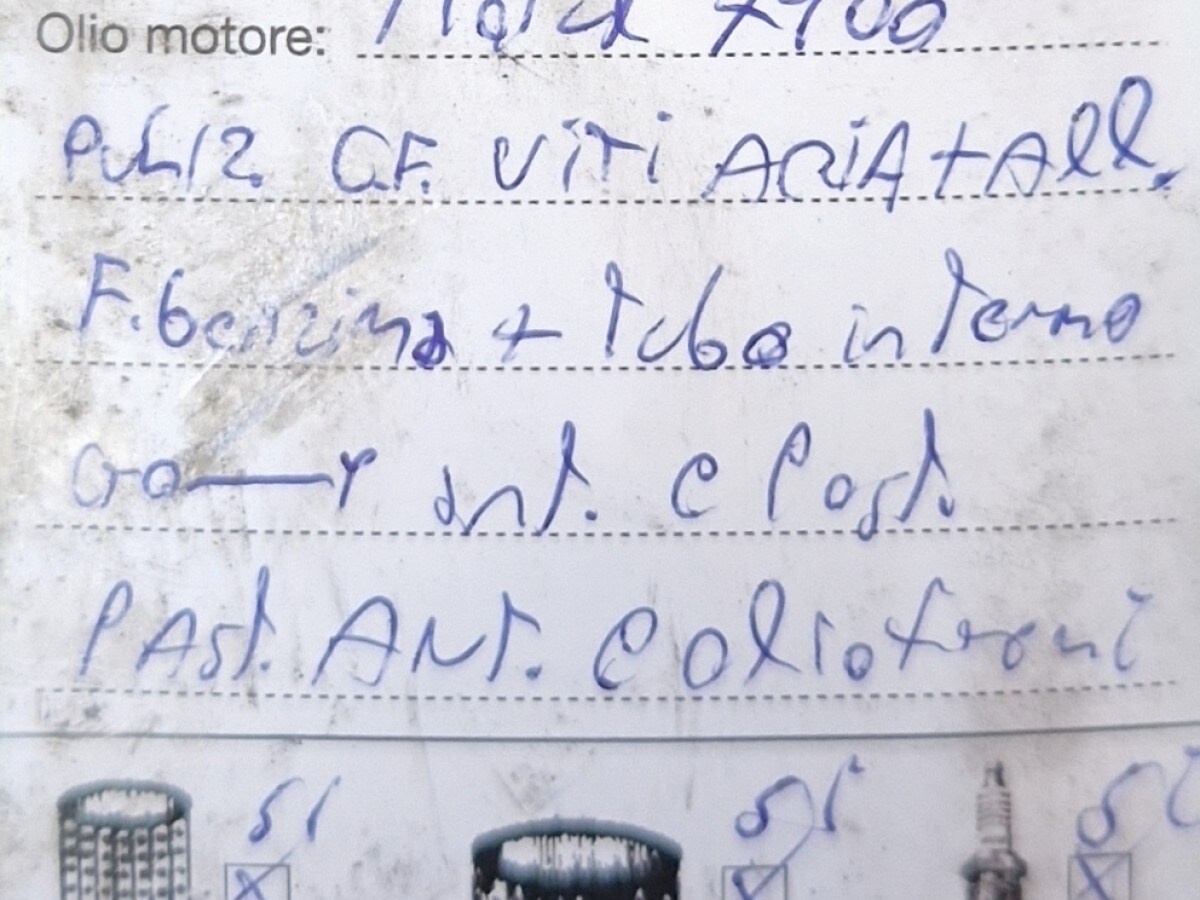 Olio motore: Motul 7100
Puliz. C.F. Viti ARiA + All.
F. benzina + tubo interno
ant. e Post.
PAst. ANT. e olio freni
si si si